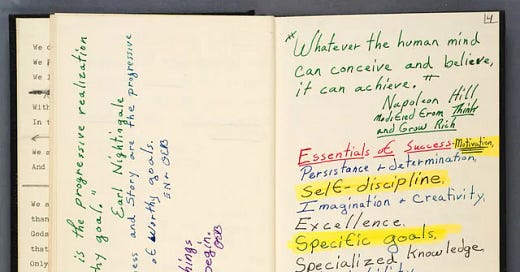 We d
We
We l
With
In t
We
And
We a
than
Gods
that
Only
is the progressive realization
thy goal."
Earl Nightingale
ess and Story are the progressive
of worthy goals.
EN + OEB
things
begin.
OEB
4
"Whatever the human mind
can conceive and believe,
it can achieve."
Napoleon Hill
Modified From Think
and Grow Rich
Essentials of Success: Motivation,
Persistance + determination,
Self-discipline,
Imagination & Creativity,
Excellence.
Specific goals,
Specialized Knowledge,